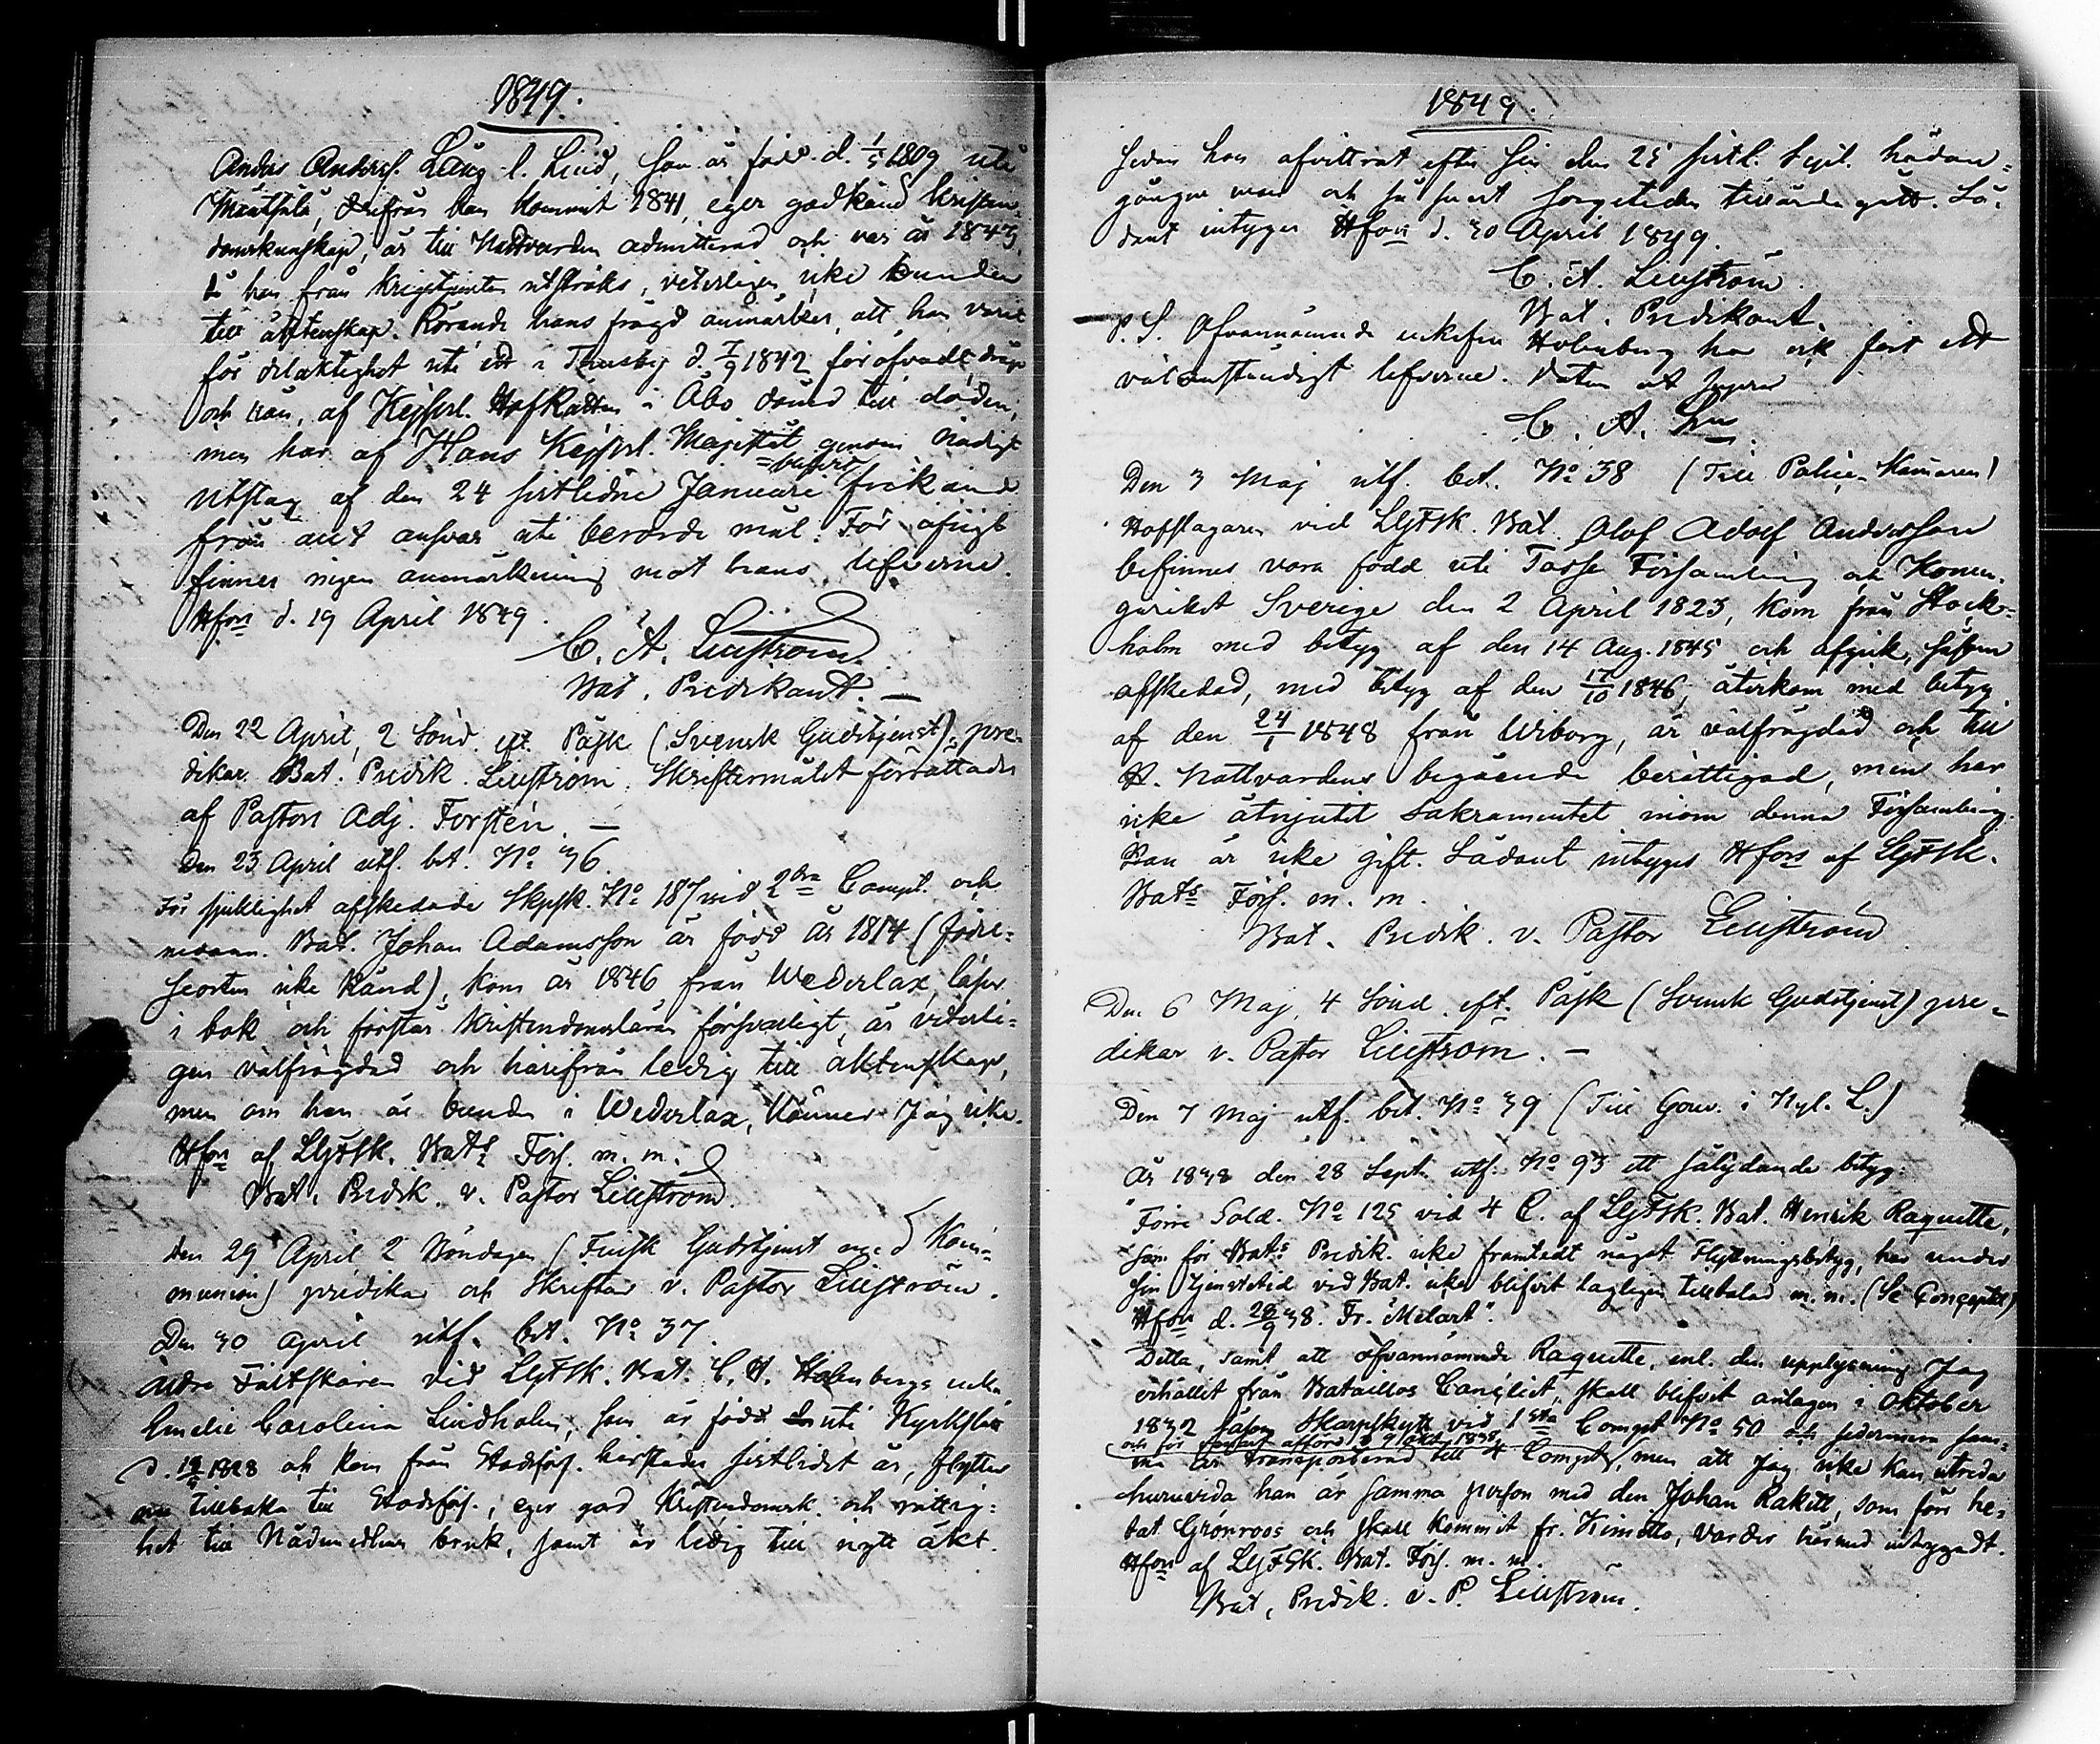 1849.
Anders Anderss. Läng l. Lind, som är född d. 1/5 1809 uti
Mäntsälä, derifrån han kommit 1841, eger godkänd kristen-
domskunskap, är till Nattvarden admitterad och var år 1843,
då han från krigstjensten utströks, veterligen icke bunden
till äktenskap. Rörande hans frägd anmärkes, att han varit
för delaktighet uti ett i Thusby d. 7/9 1842 föröfvadt dråp
och rån, af Kejserl. HofRätten i Åbo dömd till döden,
men har af Hans Kejserl. Majestät genom nådigt
utslag af den 24 sistlidne Januari frikänd
från allt ansvar uti berörde mål. För öfrigt
finnes ingen anmärkning mot hans lefverne.
Hfors d. 19 April 1849.
C. A. Liliström.
Bat. Predikant. —
Den 22 April, 2 Sönd. eft. Påsk (Svensk Gudstjenst), pre-
dikar Bat. Predik. Liliström. Skriftermålet förrättades
af Pastors Adj. Forstén. —
Den 23 April utf. bet. No 36.
För sjuklighet afskedade Skpsk. No 187 vid 2dra Comp. och
nedann. Bat. Johan Adamsson är född år 1814 (Födel-
seorten icke känd), kom år 1846 från Wederlax, läser
i bok och förstår Kristendomsläran försvarligt, är veterli-
gen välfrägdad och härifrån ledig till äktenskap,
men om han är bunden i Wederlax, känner Jag icke.
Hfors af LGFSk. Bats Förs. m. m.
Bat. Predik. v. Pastor Liliström.
Den 29 April 2 Böndagen (Finsk Gudstjenst med Kom-
munion) predikar och Skriftar v. Pastor Liliström.
Den 30 April utf. bet. No 37.
Äldre Fältskären vid LGFSk. Bat. C. A. Holmbergs enka
Emelie Carolina Lindholm, som är född uti Kyrkslätt
d. 1828 och kom från Stadsförs. härstädes sistlidet år, flyttar
nu tillbaka till Stadsförs., eger god Kristendomsk. och rättig-
het till Nådemedlens bruk, samt är ledig till nytt äkt.
1849.
sedan hon afvittrat efter sin den 25 sistl. Sept. hädan-
gångne man och så snart sorgetiden tilländagått. Så-
dant intygar Hfors d. 30 April 1849.
C. A. Liliström.
Bat. Predikant.
P. S. Ofvannämnde enkefru Holmberg har ock fört ett
välanständigt lefverne. Datum ut supra
C. A. Lm
Den 3 Maj utf. bet. No 38 (Till Police-Kamaren)
Hofslagaren vid LGFSk. Bat. Olof Adolf Andersson
befinnes vara född uti Torsö Församling och Konun-
gariket Sverige den 2 April 1823, kom från Stock-
holm med betyg af den 14 Aug. 1845 och afgick, såsom
afskedad, med betyg af den 17/10 1846, återkom med betyg
af den 24/1 1848 från Wiborg, är välfrägdad och till
H. Nattvardens begående berättigad, men har
icke åtnjutit Sakramentet inom denna Församling.
Han är icke gift. Sådant intygas Hfors af LGFSk.
Bats Förs. m. m.
Bat. Predik. v. Pastor Liliström.
Den 6 Maj, 4 Sönd. eft. Påsk (Svensk Gudstjenst) pre-
dikar v. Pastor Liliström. —
Den 7 Maj utf. bet. No 39 (Till Gouv. i Nyl. L.)
År 1838 den 28 Sept. utf. No 93 ett sålydande betyg:
"Förre Sold. No 125 vid 4 C. af LGFSk. Bat. Henrik Raquette,
som för Bats Predik. icke framtedt något Flyttningsbetyg, har under
sin tjenstetid vid Bat. icke blifvit lagligen tilltalad m. m. (Se Conceptet)
Hfors d. 28/9 38. Fr. Melart".
Detta, samt att ofvannämnde Raquette, enl. den upplysning Jag
erhållit från Bataillons Cancliet, skall blifvit antagen i Oktober
1832 såsom Skarpskytt vid 1sta Compt. No 50 och sedermera sam-
ma år transporterad till 4 Compt., men att Jag icke kan utreda
huruvida han är samma person med den Johan Rakitt, som förr he-
tat Grönroos och skall kommit fr. Kimitto, varder härmed intygadt.
Hfors af LGFSk. Bat. Förs. m. m.
Bat. Predik. v. P. Liliström.